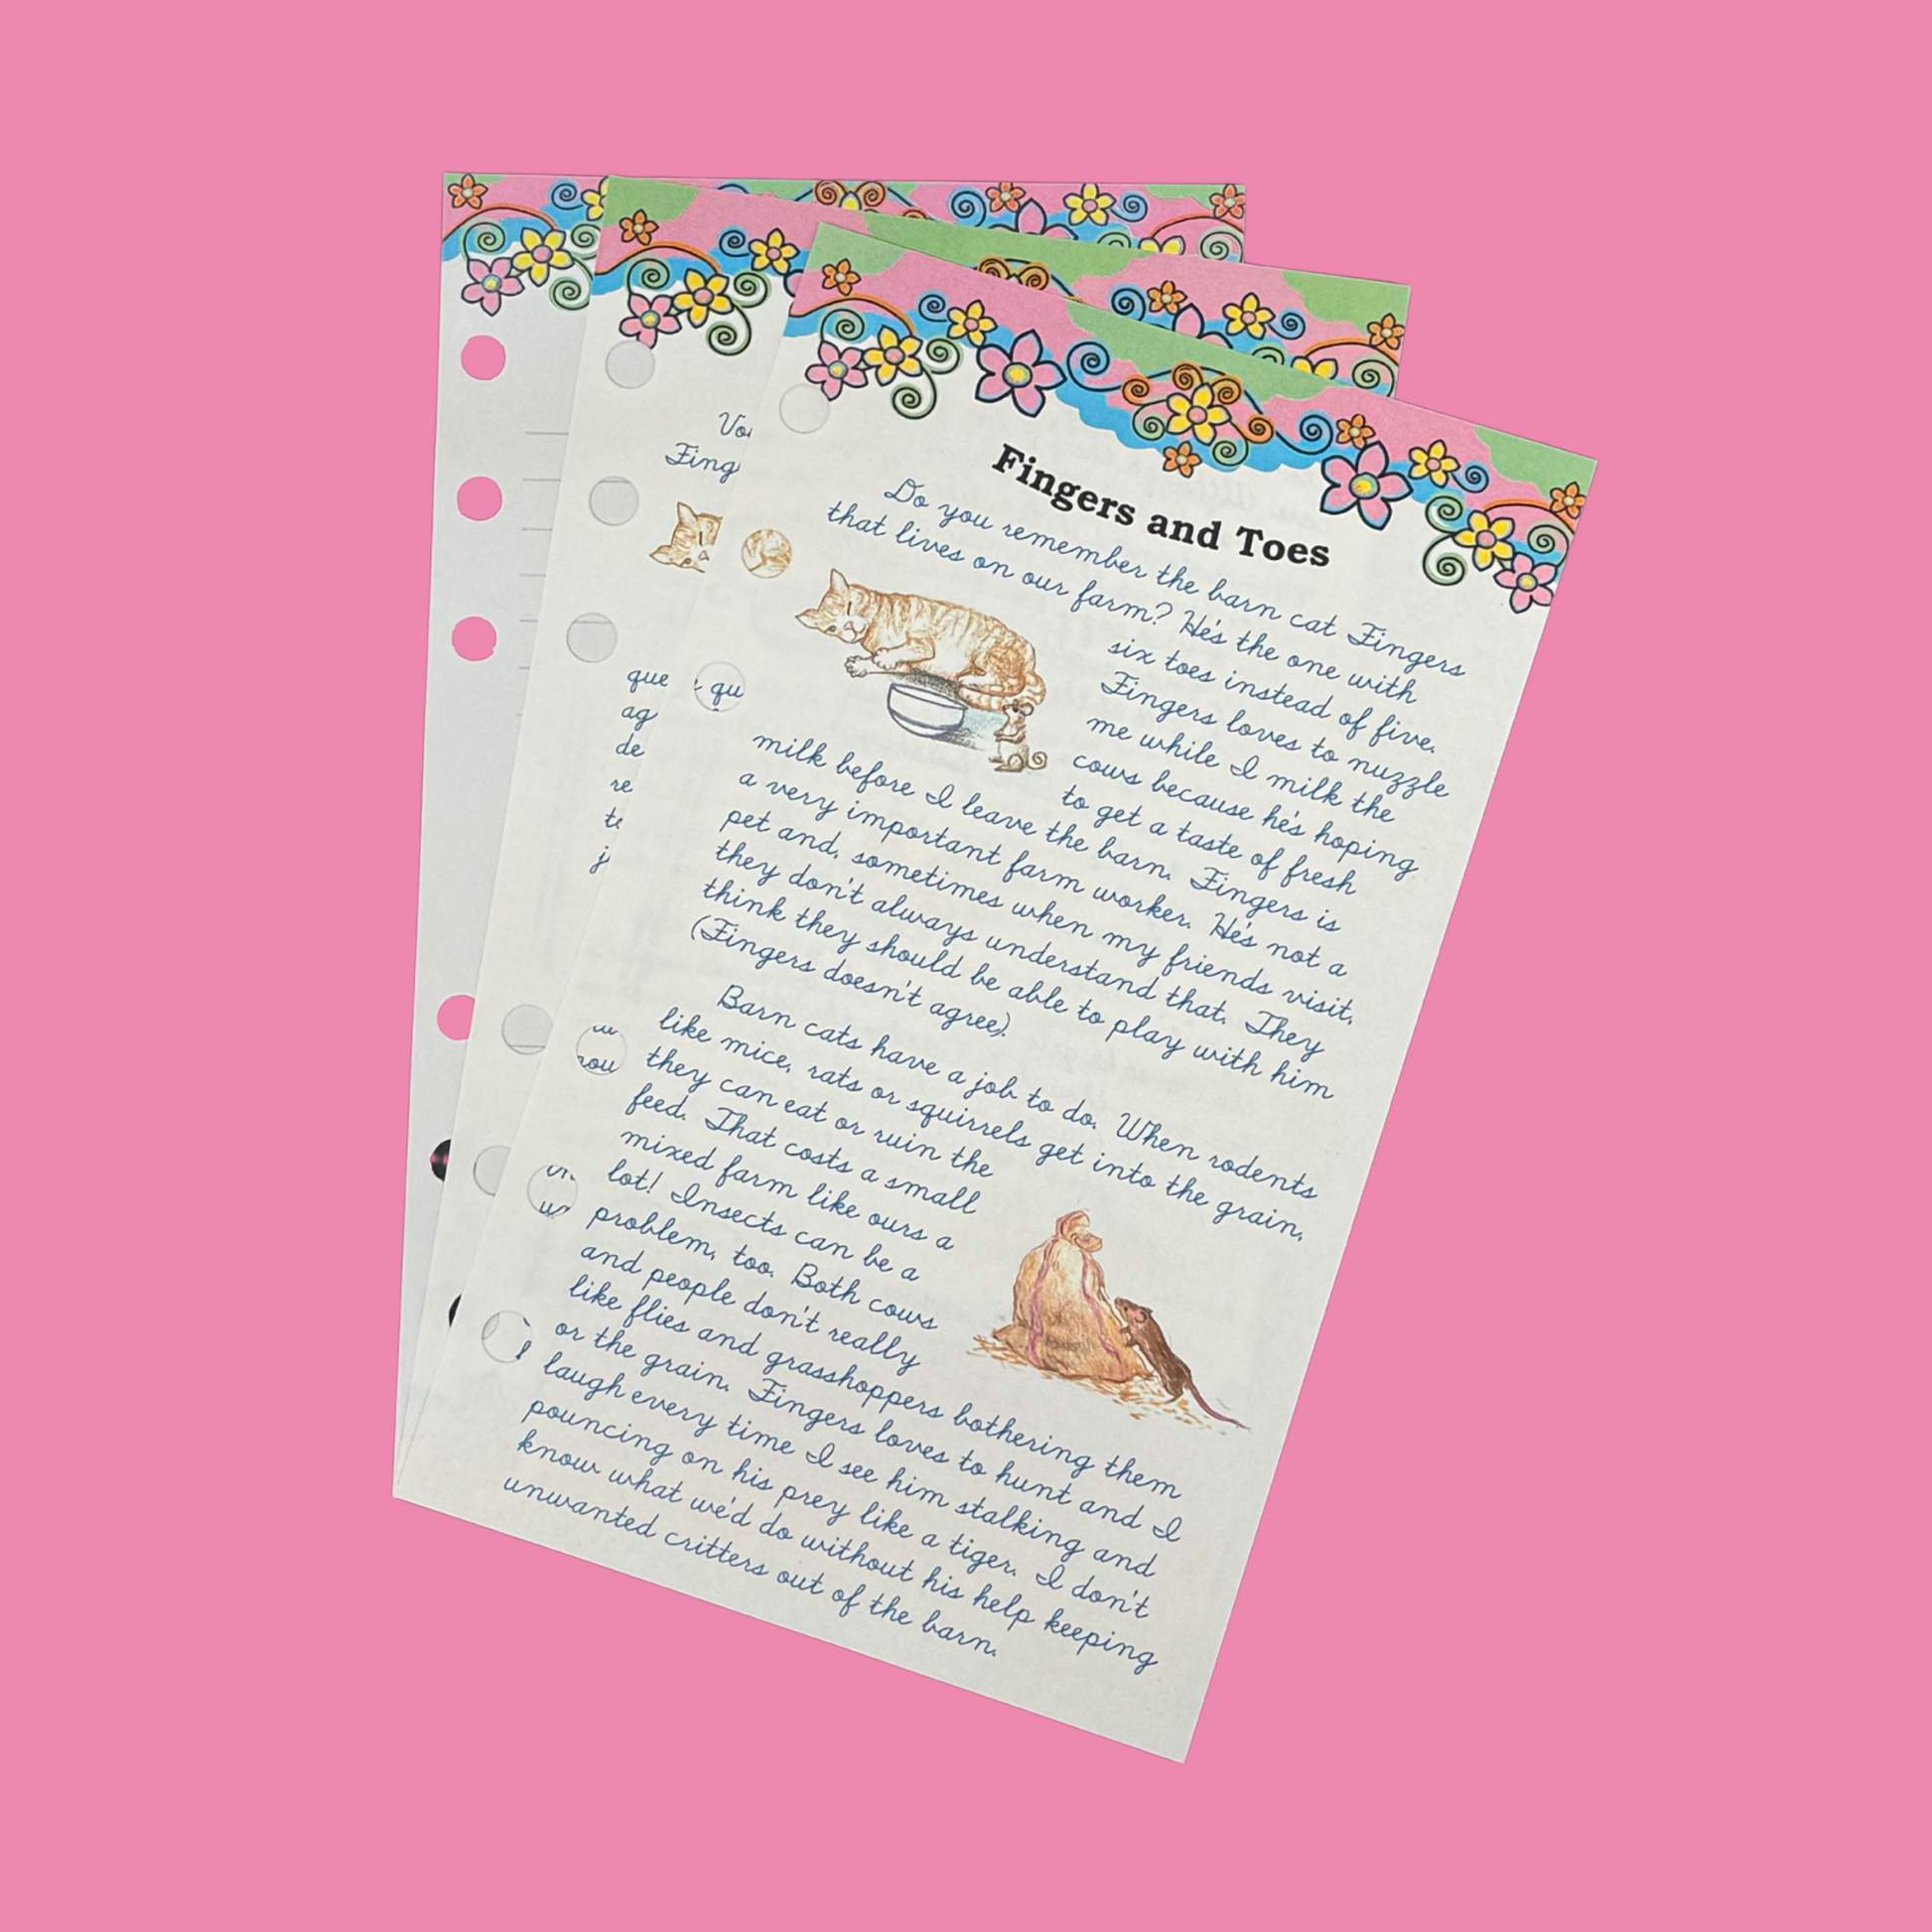 Fingers and Toes
Do you remember the barn cat Fingers
that lives on our farm? He's the one with
six toes instead of five.
Fingers loves to nuzzle
me while I milk the
cows because he's hoping
to get a taste of fresh
milk before I leave the barn. Fingers is
a very important farm worker. He's not a
pet and, sometimes when my friends visit,
they don't always understand that. They
think they should be able to play with him
(Fingers doesn't agree).
Barn cats have a job to do. When rodents
like mice, rats or squirrels get into the grain,
they can eat or ruin the
feed. That costs a small
mixed farm like ours a
lot! Insects can be a
problem, too. Both cows
and people don't really
like flies and grasshoppers bothering them
or the grain. Fingers loves to hunt and I
laugh every time I see him stalking and
pouncing on his prey like a tiger. I don't
know what we'd do without his help keeping
unwanted critters out of the barn.
que
ag
de
re
te
j